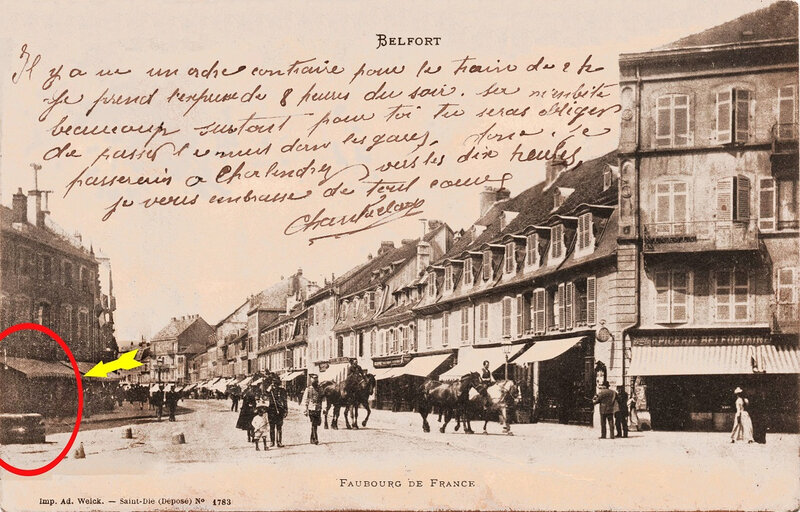 BELFORT
Il y a eu un ordre contraire pour le train de 2 h
Je prend l'express de 8 heures du soir.
beaucoup surtout pour toi tu seras obliger
de passer la nuit dans les gares, donc je
passerais a Chalindrey vers les dix heures
je vous embrasse de tout coeur
EPICERIE BELFORT
FAUBOURG DE FRANCE
Imp. Ad. Weick. — Saint-Dié (Déposé) No 4783